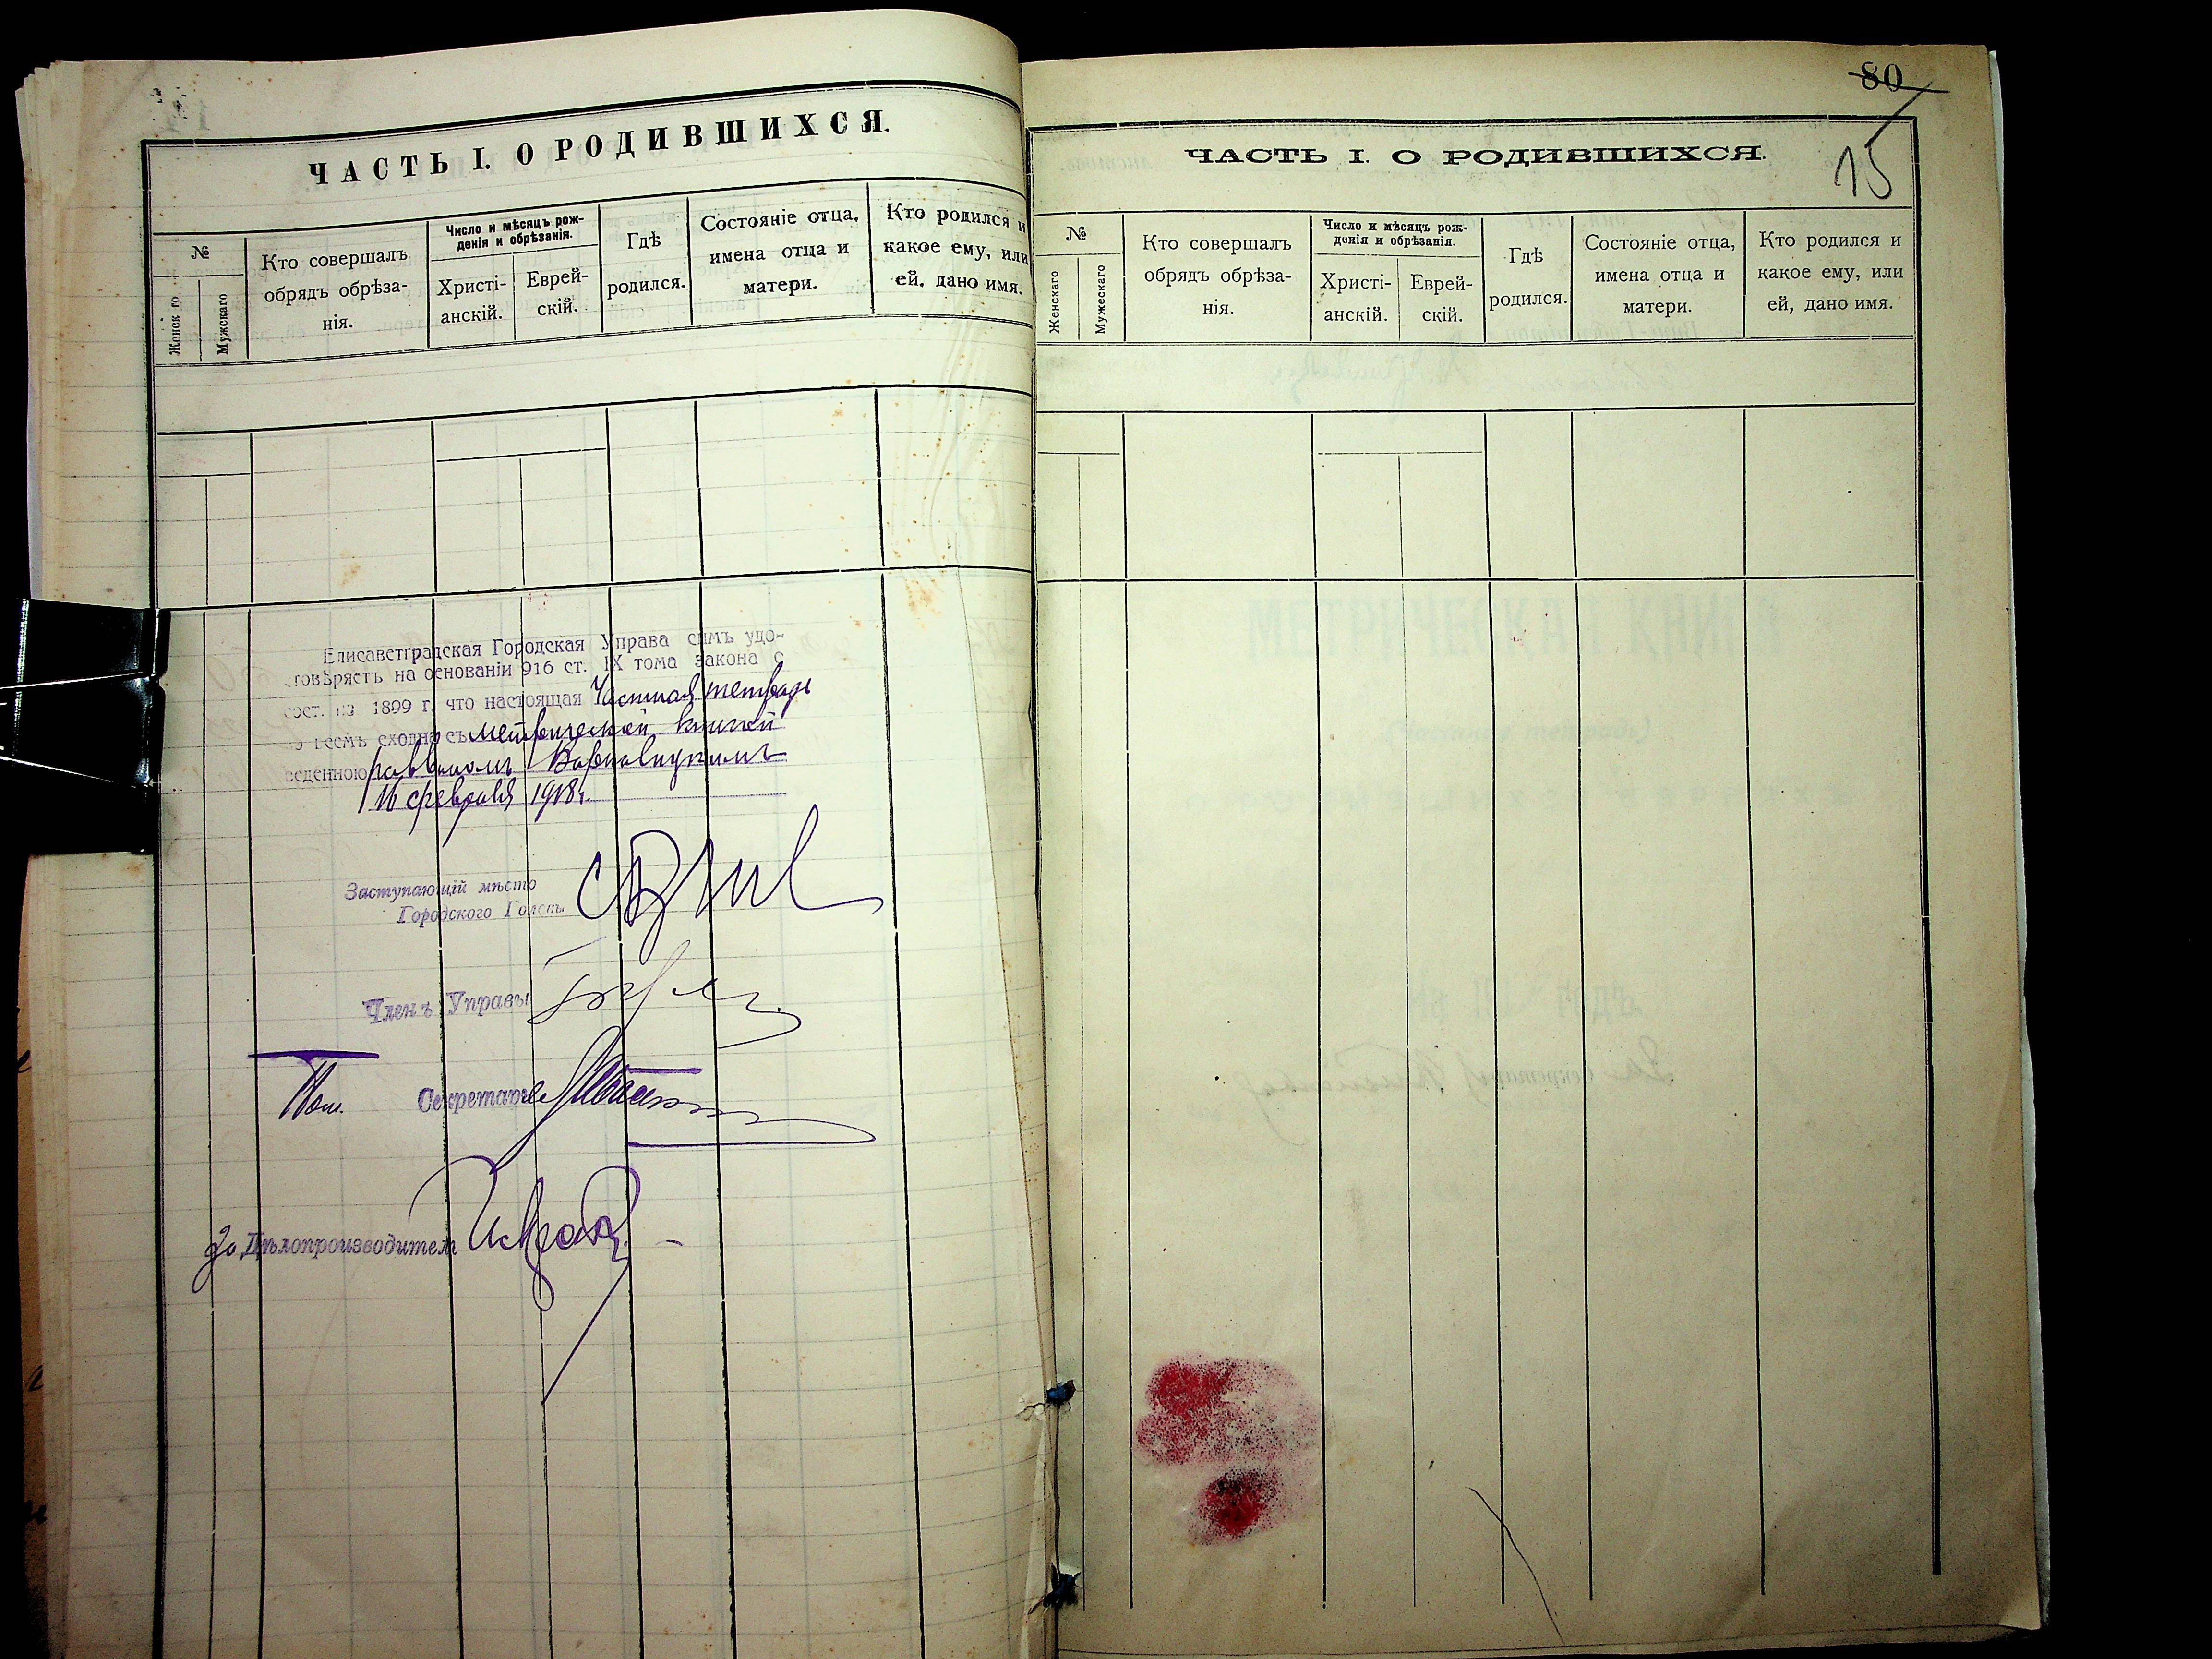 ЧАСТЬ I. О РОДИВШИХСЯ.
№
Женск го
Мужскаго
Кто совершалъ
обрядъ обрѣза-
нія.
Число и мѣсяцъ рож-
денія и обрѣзанія.
Христі-
анскій.
Еврей-
скій.
Гдѣ
родился.
Состояніе отца,
имена отца и
матери.
Кто родился и
какое ему, или
ей, дано имя.
Елисаветградская Городская Управа симъ удо-
стовѣряетъ на основаніи 916 ст. IX тома закона о
сост. из. 1899 г. что настоящая Частная тетрадь
во всемъ сходна съ метрической книгой
веденною раввиномъ
16 февраля 1918 г.
Заступающій мѣсто
Городского Головы
Членъ Управы
Пом. Секретаря
За Дѣлопроизводителя
80
15
ЧАСТЬ I. О РОДИВШИХСЯ.
№
Женскаго
Мужескаго
Кто совершалъ
обрядъ обрѣза-
нія.
Число и мѣсяцъ рож-
денія и обрѣзанія.
Христі-
анскій.
Еврей-
скій.
Гдѣ
родился.
Состояніе отца,
имена отца и
матери.
Кто родился и
какое ему, или
ей, дано имя.